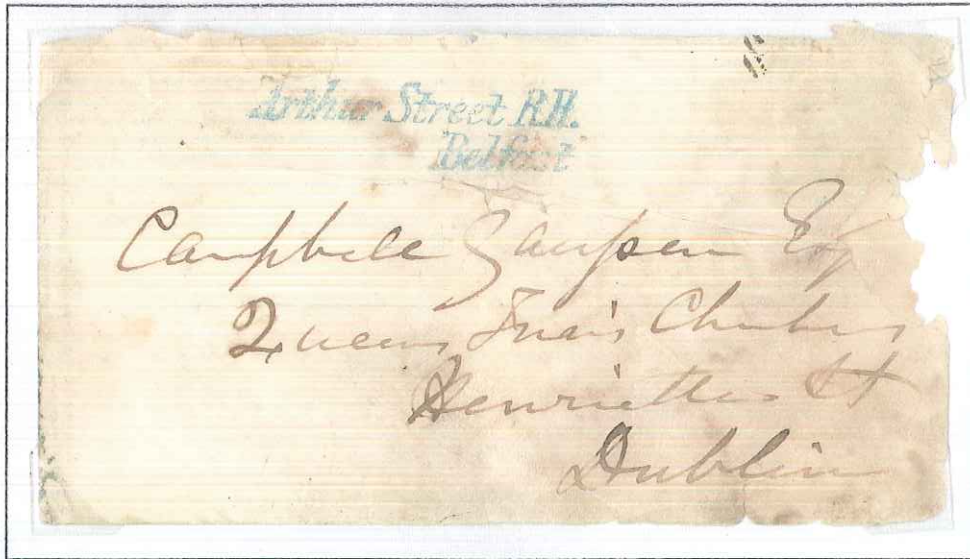 Arthur Street R.H.
Belfast
Campbell Esq
Queens Inns Chambers
Henrietta St
Dublin